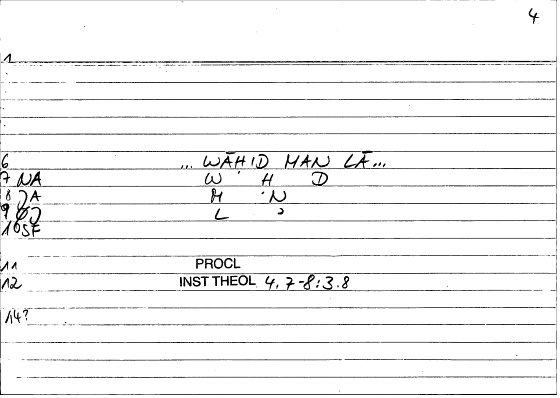 4
1
6 ... WĀḤID MAN LĀ...
7 NA W Ḥ D
8 JA M N
9 L ʾ
10 SF
11 PROCL
12 INST THEOL 4.7-8:3.8
14?